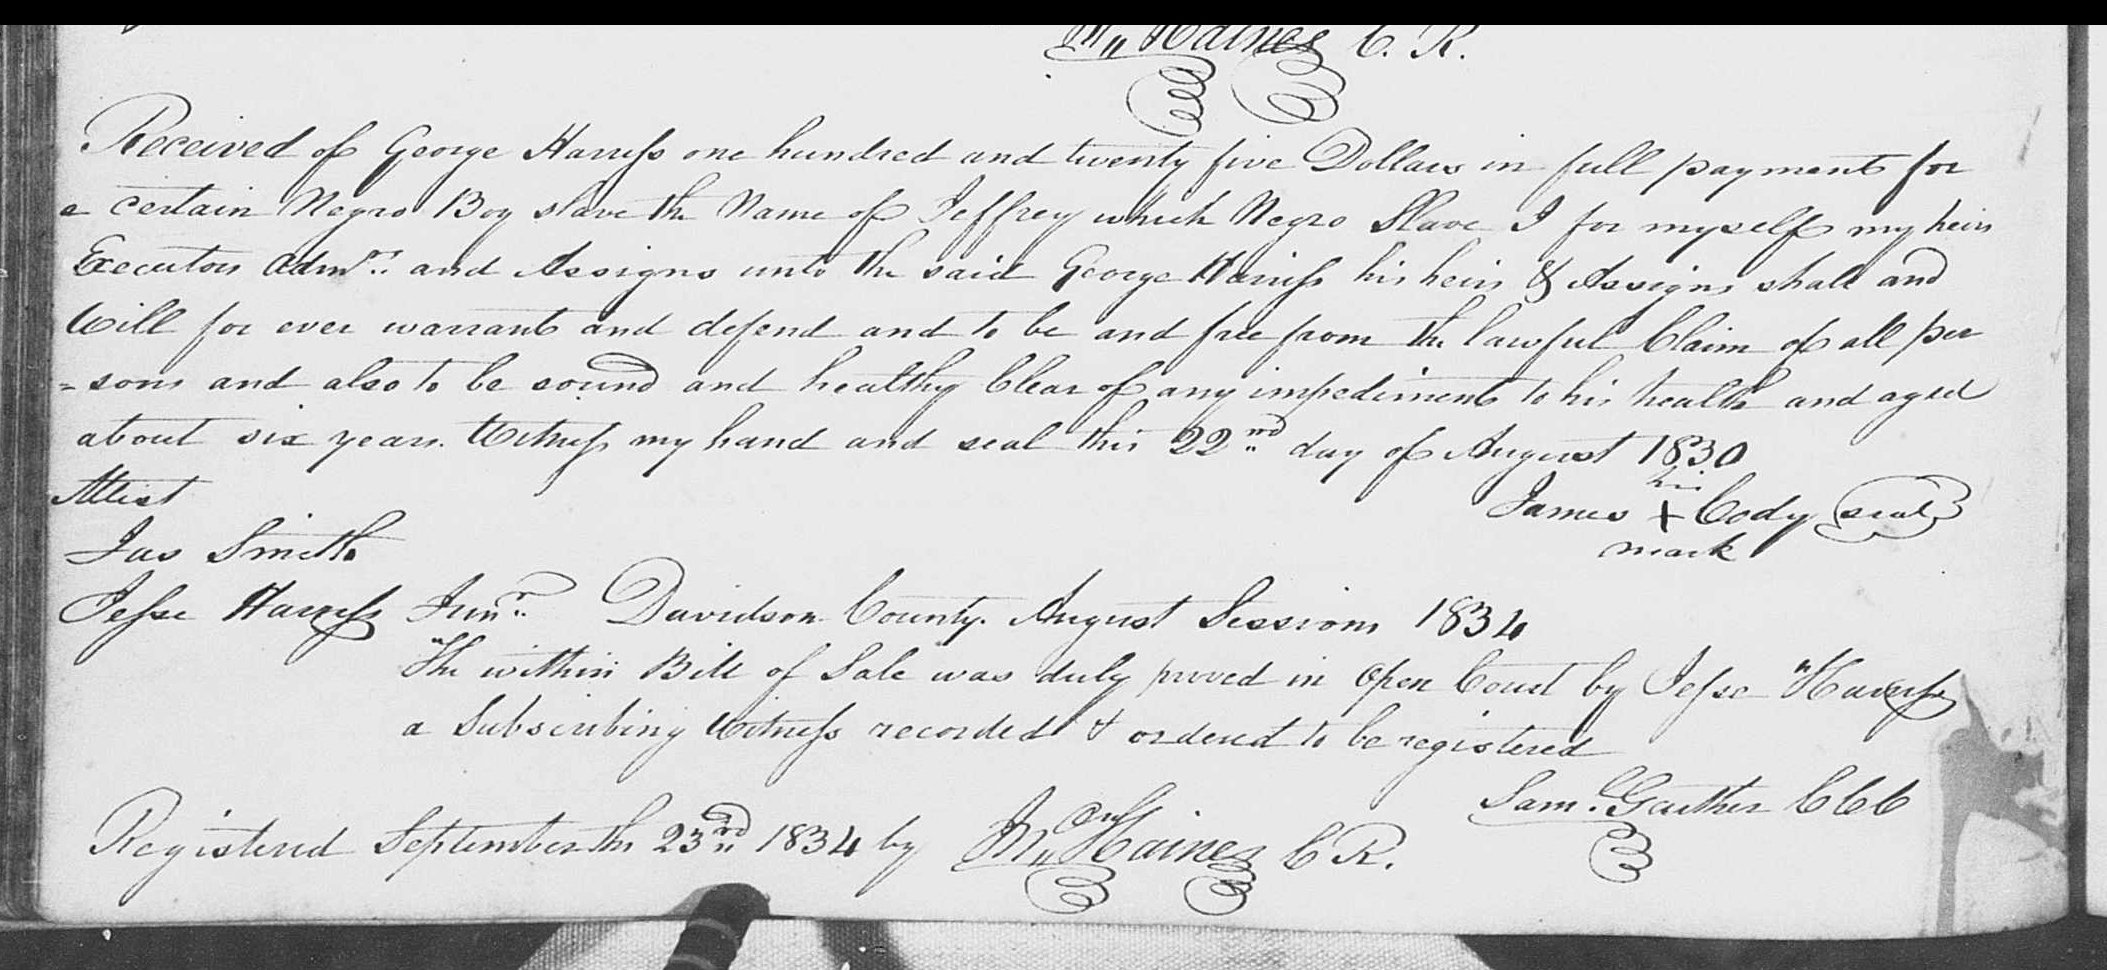 M,, Haines C. R.
Received of George Harriss one hundred and twenty five Dollars in full payment for
a certain Negro Boy slave the Name of Jeffrey which Negro Slave I for myself my heirs
Executors Admrs. and Assigns unto the said George Harriss his heirs & Assigns shall and
will for ever warrant and defend and to be and free from the lawful Claim of all per
=sons and also to be sound and healthy Clear of any impediment to his health and aged
about six years. Witness my hand and seal this 22nd day of August 1830
his
Attest James + Cody seal
mark
Jas Smith
Jesse Harriss Junr. Davidson County. August Sessions 1834
The within Bill of Sale was duly proved in open Court by Jesse Harriss
a Subscribing Witness recorded & ordered to be registered
Sam. Gaither CCC
Registered September the 23rd 1834 by M,, Haines C R.